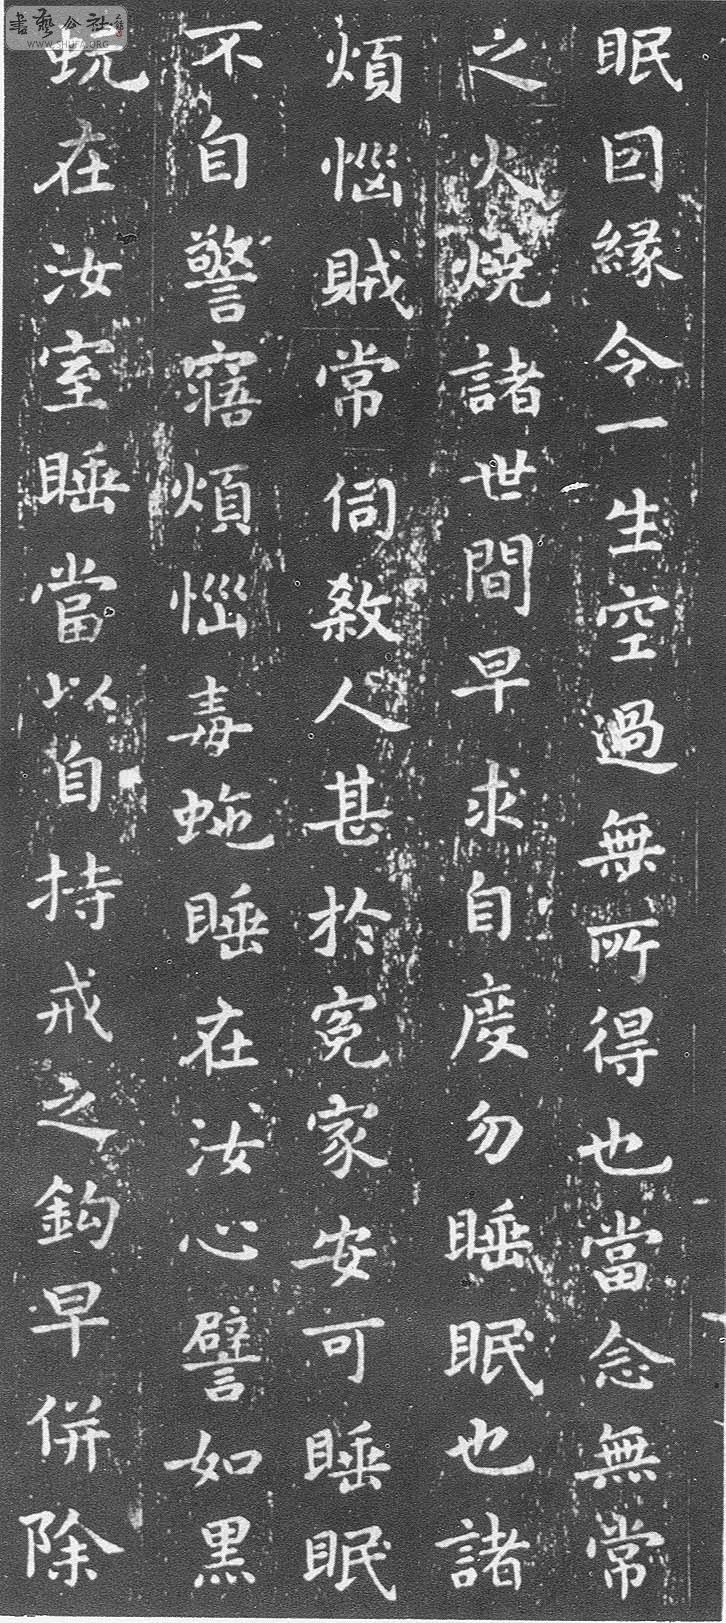 眠囙緣令一生空過無所得也當念無常
之火燒諸世間早求自度勿睡眠也諸
煩惱賊常伺煞人甚於寃家安可睡眠
不自警寤煩惱毒虵睡在汝心譬如黑
蚖在汝室睡當以自持戒之鈎早併除
書藝公社
WWW.SHUFA.ORG